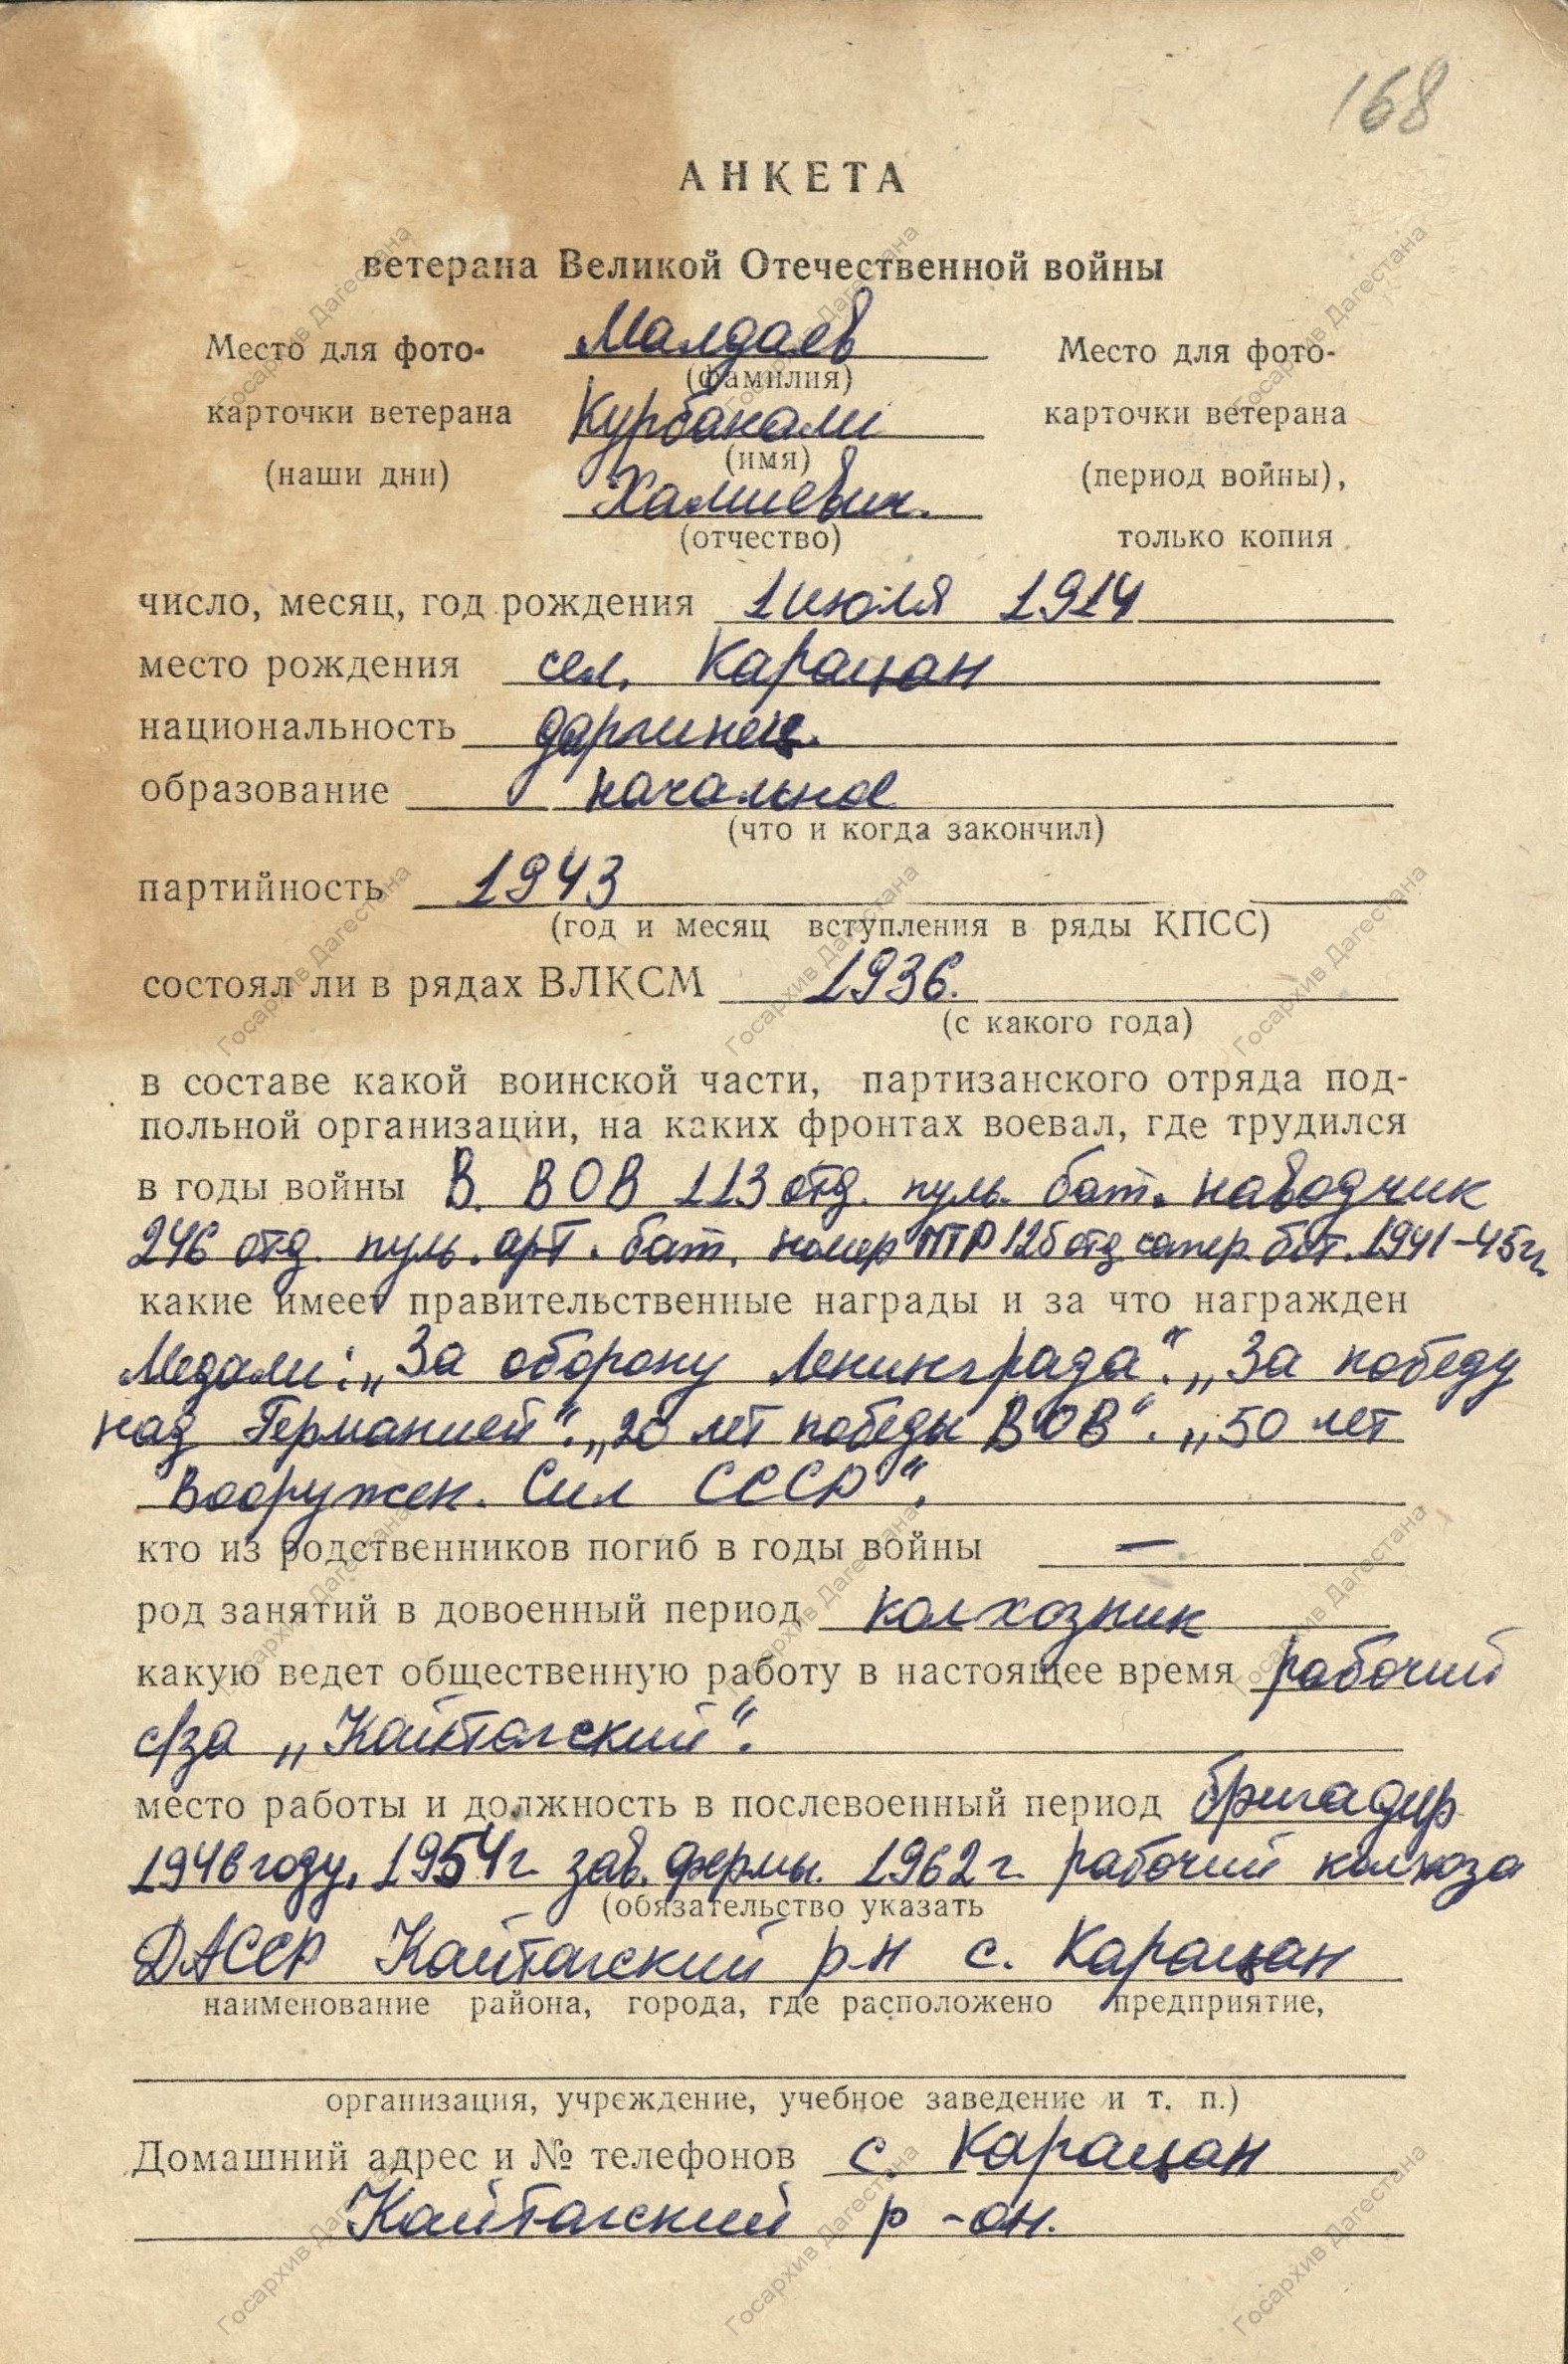 168
АНКЕТА
ветерана Великой Отечественной войны
Место для фото- Малдаев Место для фото-
(фамилия)
карточки ветерана Курбанали карточки ветерана
(наши дни) (имя) (период войны),
Халиевич.
(отчество) только копия
число, месяц, год рождения 1 июля 1914
место рождения сел. Карацан
национальность даргинец.
образование начальное
(что и когда закончил)
партийность 1943
(год и месяц вступления в ряды КПСС)
состоял ли в рядах ВЛКСМ 1936.
(с какого года)
в составе какой воинской части, партизанского отряда под-
польной организации, на каких фронтах воевал, где трудился
в годы войны В. ВОВ 113 отд. пуль. бат. наводчик
246 отд. пуль. арт. бат. номер ПТР 125 отд сапер. бат. 1941-45гг.
какие имеет правительственные награды и за что награжден
Медали: „За оборону Ленинграда“. „За победу
над Германией“. „20 лет победы ВОВ“. „50 лет
Вооружен. Сил СССР“.
кто из родственников погиб в годы войны —
род занятий в довоенный период колхозник
какую ведет общественную работу в настоящее время рабочий
с/за „Кайтагский“.
место работы и должность в послевоенный период бригадир
1946 году, 1954г зав. фермы. 1962 г. рабочий колхоза
(обязательство указать
ДАССР Кайтагский р-н с. Карацан
наименование района, города, где расположено предприятие,
организация, учреждение, учебное заведение и т. п.)
Домашний адрес и № телефонов с. Карацан
Кайтагский р-он.
Госархив Дагестана